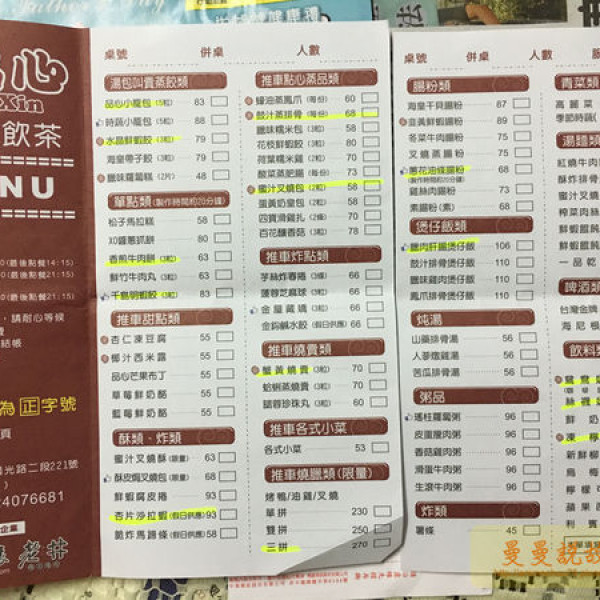 心
Xin
飲茶
NU
0(最後點餐14:15)
0(最後點餐21:15)
0(最後點餐21:15)
,請耐心等候
費
結帳
為正字號
頁
光路二段221號
4076681
企業
桌號 併桌 人數
湯包叫賣蒸餃類
品心小籠包(5粒) 83
時蔬小籠包(5粒) 68
水晶鮮蝦餃(3粒) 79
海皇帶子餃(3粒) 79
臘味蘿蔔糕(2片) 48
單點類(製作時間約20分鐘)
松子馬拉糕 58
XO醬蔥抓餅 80
香煎牛肉餅(3粒) 63
鮮竹牛肉丸(3粒) 63
千島明蝦餃(3粒) 63
推車甜點類
杏仁凍豆腐 55
椰汁西米露 55
品心芒果布丁 55
草莓鮮奶酪 55
藍莓鮮奶酪 55
酥類、炸類
蜜汁叉燒酥(限量) 63
酥皮焗叉燒包(限量) 68
鮮蝦腐皮捲 93
杏片沙拉蝦(假日供應) 93
脆炸馬蹄條(假日供應) 58
推車點心蒸品類
蠔油蒸鳳爪(每份) 60
豉汁蒸排骨(每份) 68
臘味糯米包(2粒) 68
花枝鮮蝦餃(3粒) 68
荷葉糯米雞(2粒) 68
酸菜蒸肥腸(每份) 73
蜜汁叉燒包(2粒) 58
蛋黃奶皇包(2粒) 58
四寶滑雞扎(2粒) 68
百花釀香菇(3粒) 78
推車炸點類
芋絲炸春捲(3條) 60
蓮蓉芝麻球(3粒) 60
金屋藏嬌(3粒) 60
金鉤鹹水餃(假日供應) 60
推車燒賣類
蟹黃燒賣(3粒) 70
蛤蜊蒸燒賣(3粒) 70
鯖蓉珍珠丸(3粒) 70
推車各式小菜
各式小菜 53
推車燒臘類(限量)
烤鴨/油雞/叉燒
單拼 230
雙拼 250
三拼 270
桌號
腸粉類
海皇干貝腸粉 89
韭黃鮮蝦腸粉 89
冬菜牛肉腸粉 79
叉燒蒸腸粉 75
蔥花油條腸粉 65
(製作時間約20分鐘)
雞絲肉腸粉 65
素腸粉(素) 68
煲仔飯類
臘肉肝腸煲仔飯 106
豉汁排骨煲仔飯 106
臘味雞肉煲仔飯 106
鳳爪排骨煲仔飯 106
炖湯
山藥排骨湯 56
人蔘燉雞湯 56
苦瓜排骨湯 56
粥品
瑤柱蘿蔔粥 96
皮蛋瘦肉粥 96
香菇雞肉粥 96
滑蛋牛肉粥 96
生滾牛肉粥 96
炸類
薯條 45
飯
青菜類
高麗菜
季節時蔬(
湯麵類
紅燒牛肉
酥炸排骨
蜜汁叉燒
榨菜肉絲
鮮蝦餛飩
鮮蝦餛飩
一品乾
啤酒類
台灣金牌
海尼根
飲料類
鴛鴦
絲襪
鮮奶
凍檸
新鮮柳
烏梅
檸檬
蘋果
利賓
曼曼說說